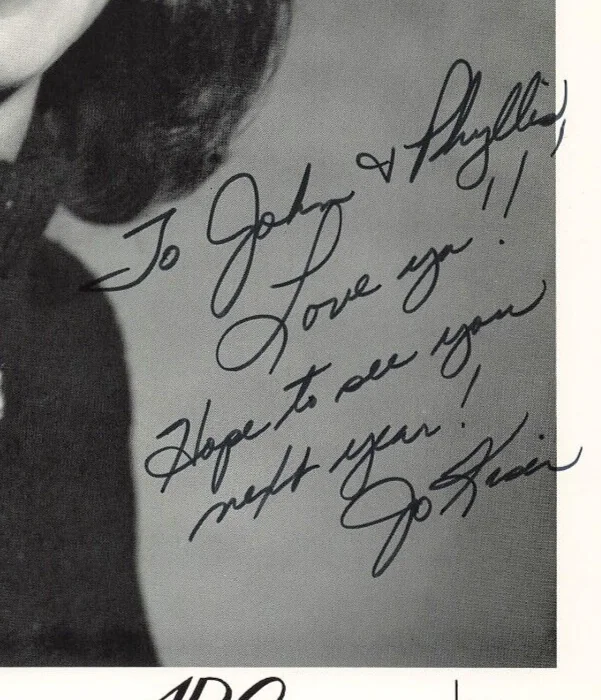 To John & Phyllis,
Love ya!!
Hope to see you
next year!
Jo Kiser